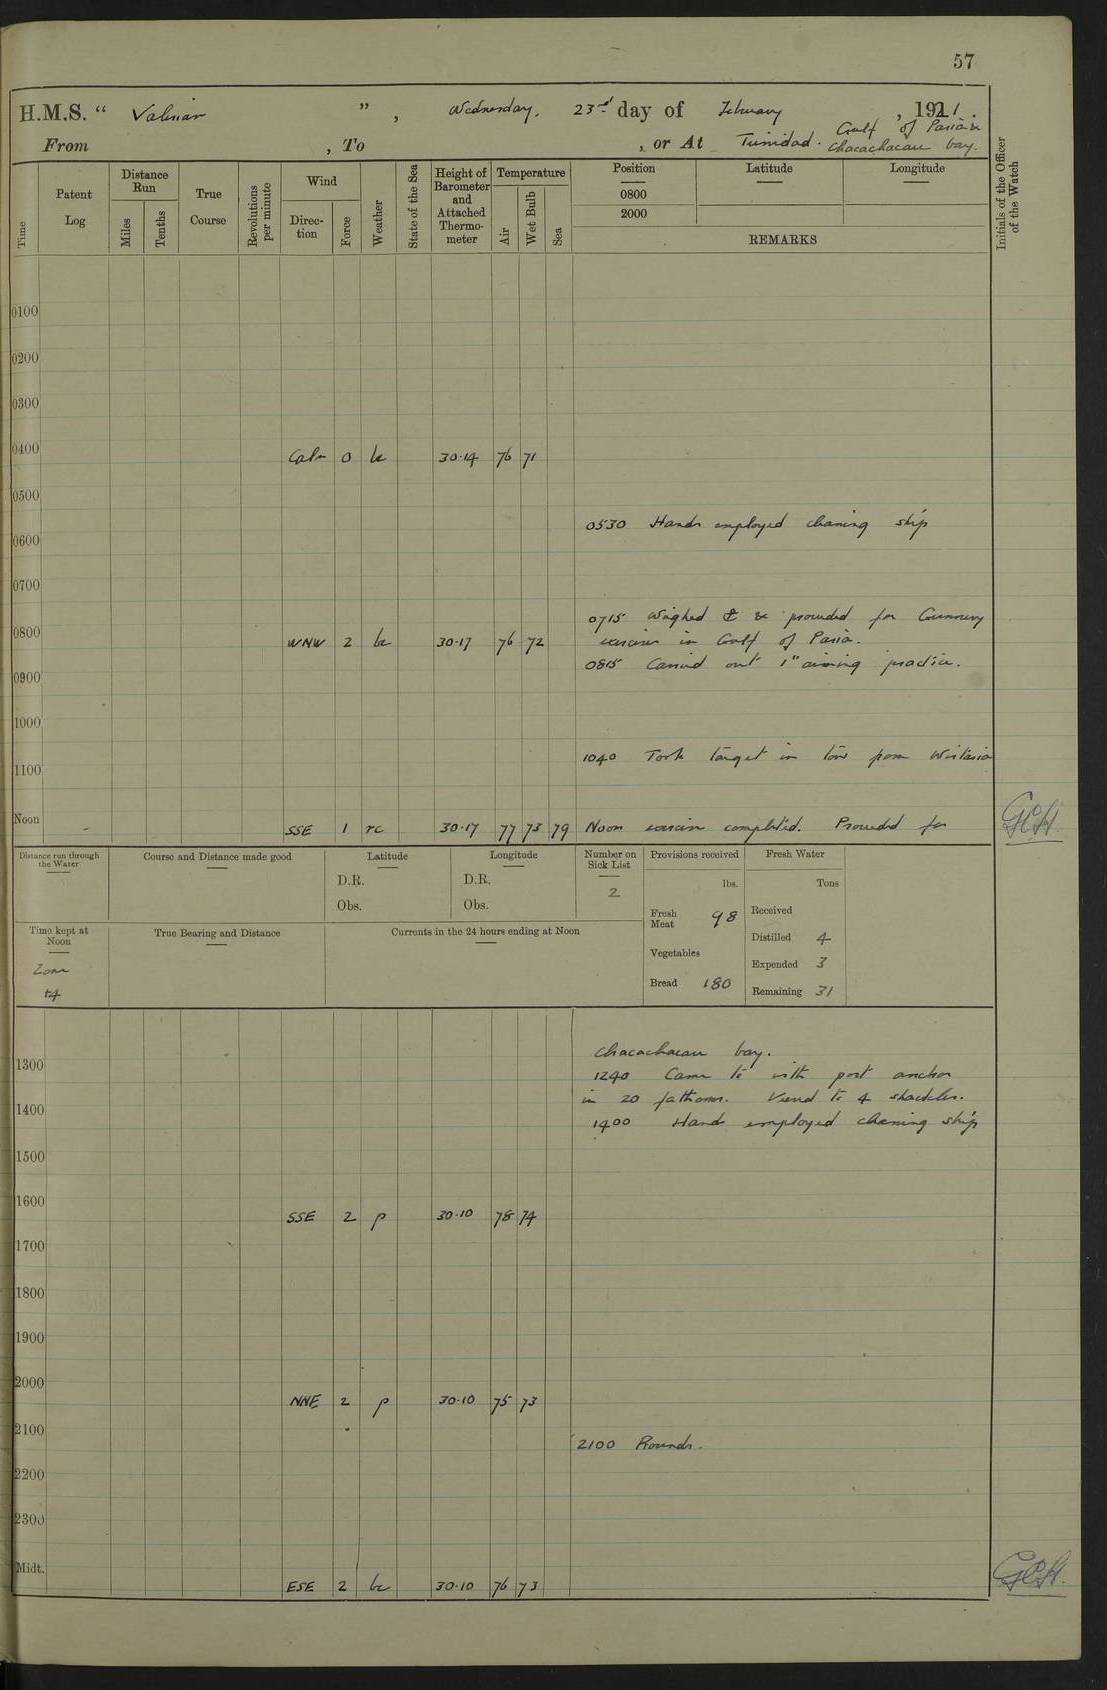 57
H.M.S. “ Valerian ” , Wednesday, 23rd day of February , 1921.
Gulf of Paria
From , To , or At Trinidad. Chacachacare bay.
Time
Patent Log
Distance Run
Miles
Tenths
True Course
Revolutions per minute
Wind
Direc-tion
Force
Weather
State of the Sea
Height of Barometer and Attached Thermo-meter
Temperature
Air
Wet Bulb
Sea
Position
0800
2000
Latitude
Longitude
REMARKS
Initials of the Officer of the Watch
0100
0200
0300
0400
Calm 0 bc 30·14 76 71
0500
0530 Hands employed cleaning ship
0600
0700
0715 Weighed & proceeded for Gunnery
0800
WNW 2 bc 30·17 76 72 exercise in Gulf of Paria.
0815 Carried out 1" aiming practice.
0900
1000
1040 Took target in tow from Wistaria
1100
Noon
SSE 1 rc 30·17 77 73 79 Noon exercise completed. Proceeded for
GCH
Distance run through the Water
Course and Distance made good
Latitude
D.R.
Obs.
Longitude
D.R.
Obs.
Number on Sick List
2
Provisions received
lbs.
Fresh Meat 98
Vegetables
Bread 180
Fresh Water
Tons
Received
Distilled 4
Expended 3
Remaining 31
Time kept at Noon
Zone
+4
True Bearing and Distance
Currents in the 24 hours ending at Noon
Chacachacare bay.
1300
1240 Came to with port anchor
in 20 fathoms. Veered to 4 shackles.
1400
1400 Hands employed cleaning ship
1500
1600
SSE 2 p 30·10 78 74
1700
1800
1900
2000
NNE 2 p 30·10 75 73
2100
2100 Rounds.
2200
2300
Midt.
ESE 2 bc 30·10 76 73
GCH.